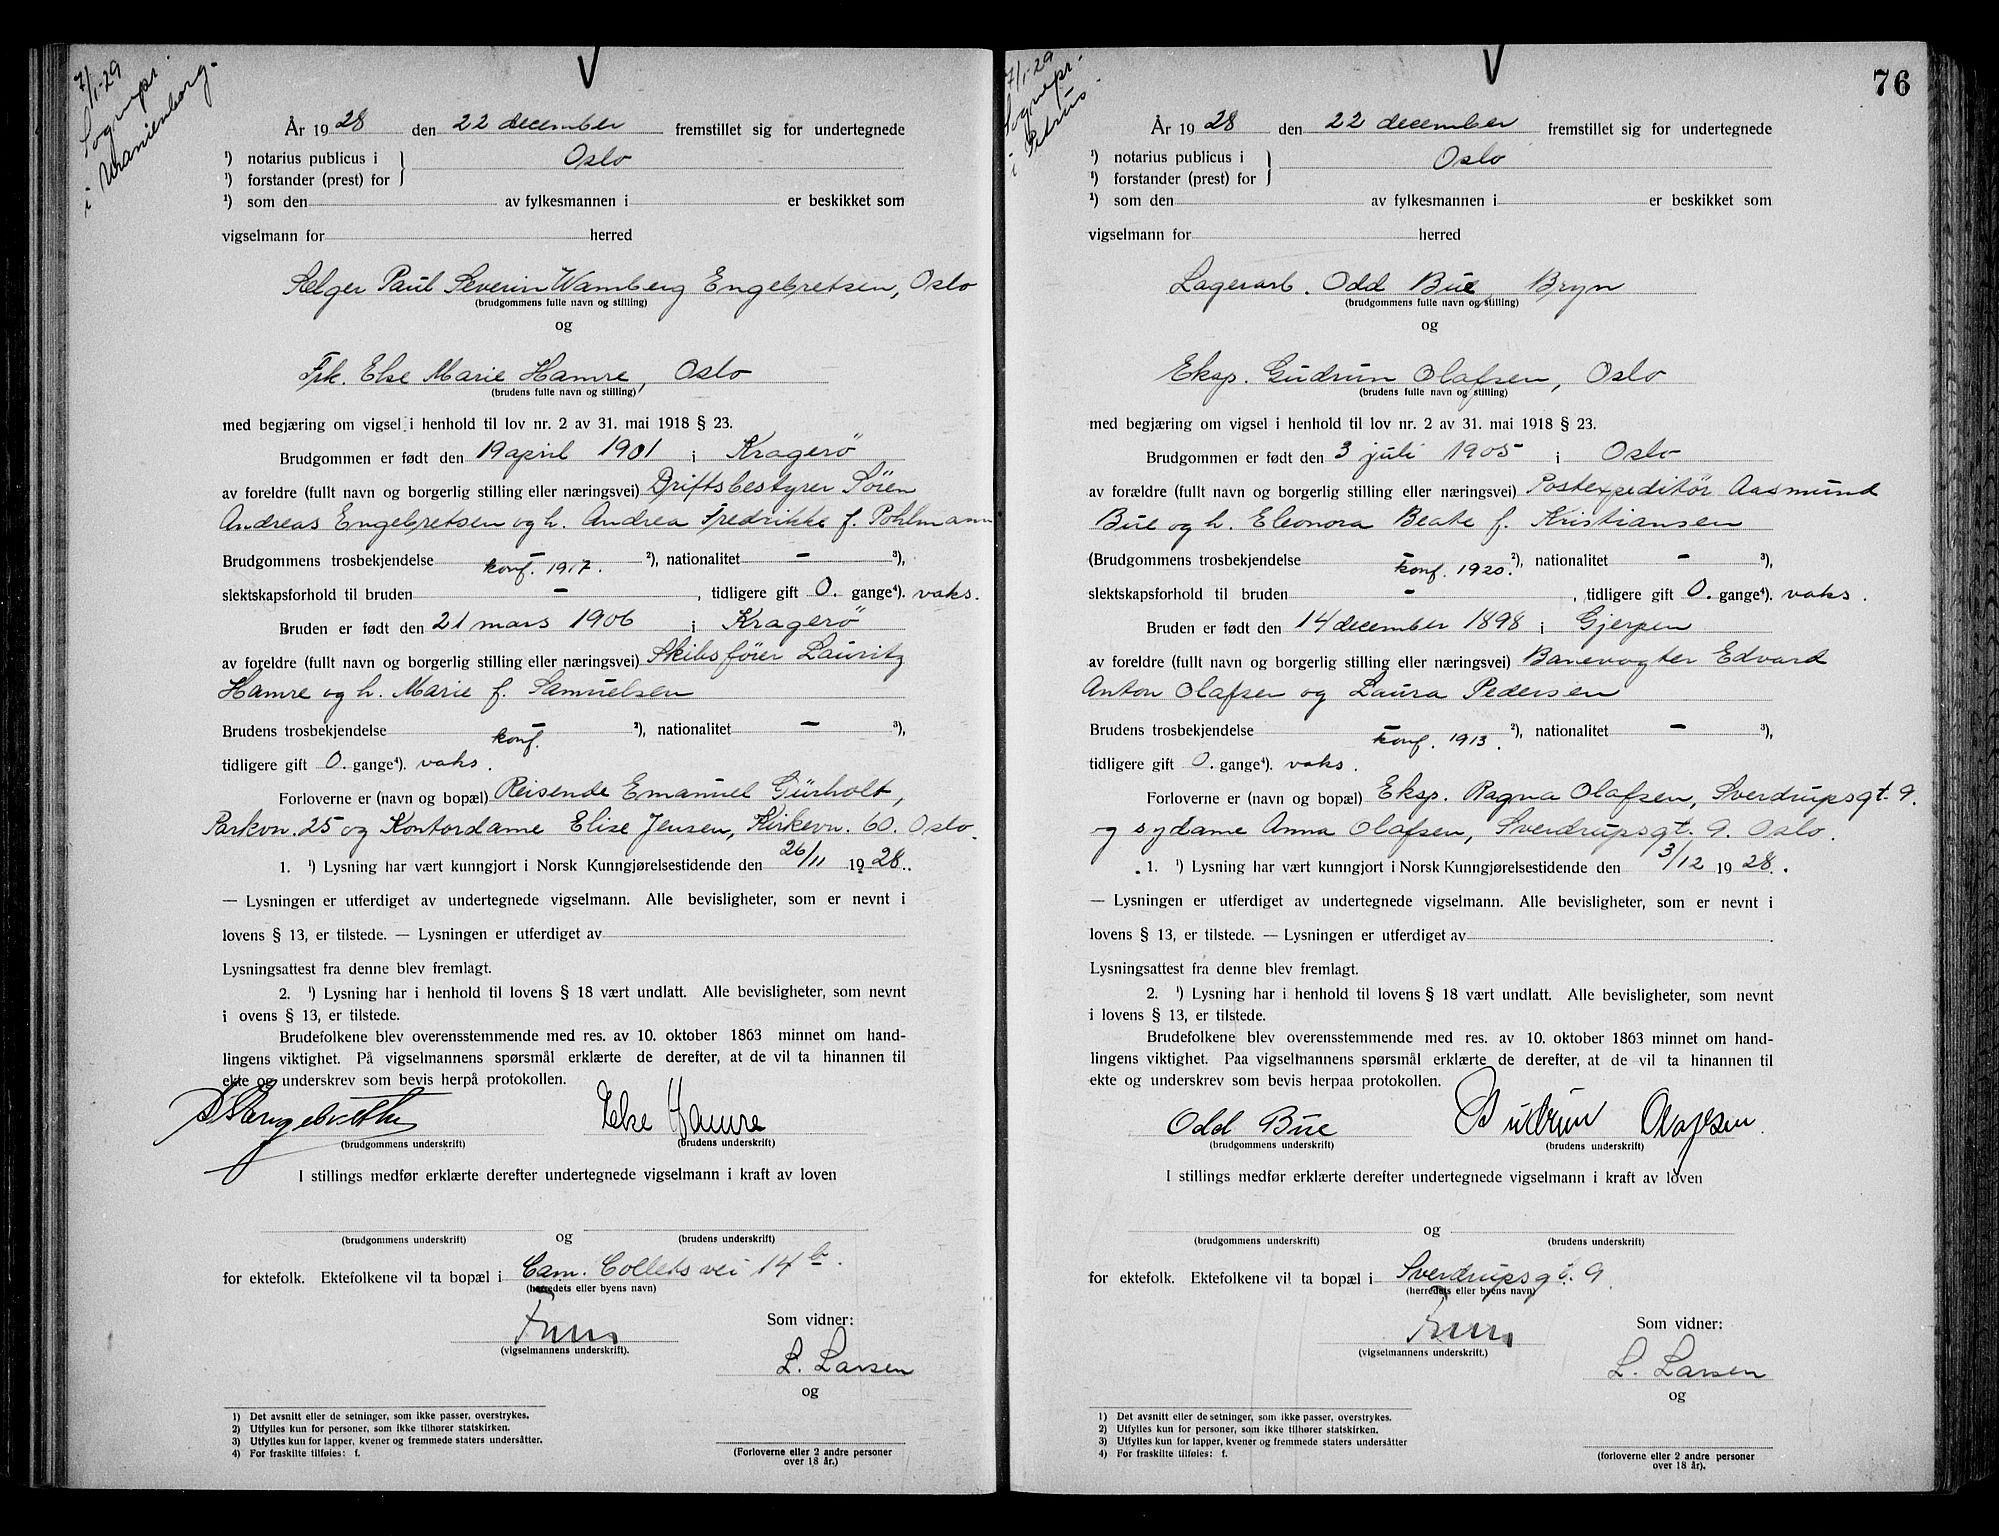 7/1-29
Sognepr.
i Uranienborg.
År 1928 den 22 december fremstillet sig for undertegnede
¹) notarius publicus i } Oslo
¹) forstander (prest) for
¹) som den av fylkesmannen i er beskikket som
vigselmann for herred
Selger Paul Severin Wamberg Engebretsen, Oslo
(brudgommens fulle navn og stilling)
og
Frk. Else Marie Hamre, Oslo
(brudens fulle navn og stilling)
med begjæring om vigsel i henhold til lov nr. 2 av 31. mai 1918 § 23.
Brudgommen er født den 19 april 1901 i Kragerö
av foreldre (fullt navn og borgerlig stilling eller næringsvei) Driftsbestyrer Sören
Andreas Engebretsen og h. Andrea Fredrikke f. Pohlmann
Brudgommens trosbekjendelse konf. 1917. ²), nationalitet — ³),
slektskapsforhold til bruden — , tidligere gift 0. gange⁴). vaks.
Bruden er født den 21 mars 1906 i Kragerö
av foreldre (fullt navn og borgerlig stilling eller næringsvei) Skibsförer Lauritz
Hamre og h. Marie f. Samuelsen
Brudens trosbekjendelse konf. ²), nationalitet — ³),
tidligere gift 0. gange⁴). vaks.
Forloverne er (navn og bopæl) Reisende Emanuel Gürholt,
Parkvn. 25 og Kontordame Elise Jensen, Kirkevn. 60. Oslo.
1. ¹) Lysning har vært kunngjort i Norsk Kunngjørelsestidende den 26/11 1928.
— Lysningen er utferdiget av undertegnede vigselmann. Alle bevisligheter, som er nevnt i
lovens § 13, er tilstede. — Lysningen er utferdiget av
Lysningsattest fra denne blev fremlagt.
2. ¹) Lysning har i henhold til lovens § 18 vært undlatt. Alle bevisligheter, som nevnt
i ovens § 13, er tilstede.
Brudefolkene blev overensstemmende med res. av 10. oktober 1863 minnet om hand-
lingens viktighet. På vigselmannens spørsmål erklærte de derefter, at de vil ta hinannen til
ekte og underskrev som bevis herpå protokollen.
Else Hamre
(brudgommens underskrift) (brudens underskrift)
I stillings medfør erklærte derefter undertegnede vigselmann i kraft av loven
og
(brudgommens underskrift) (brudens underskrift)
for ektefolk. Ektefolkene vil ta bopæl i Cam. Colletts vei 14 b.
(herredets eller byens navn)
Som vidner:
(vigselmannens underskrift).
L. Larsen
og
1) Det avsnitt eller de setninger, som ikke passer, overstrykes.
2) Utfylles kun for personer, som ikke tilhører statskirken.
3) Utfylles kun for lapper, kvener og fremmede staters undersåtter.
4) For fraskilte tilføies: f.
(Forloverne eller 2 andre personer
over 18 år.)
76
7/1-29
Sognepr.
i Petrus.
År 1928 den 22 december fremstillet sig for undertegnede
¹) notarius publicus i } Oslo
¹) forstander (prest) for
¹) som den av fylkesmannen i er beskikket som
vigselmann for herred
Lagerarb. Odd Bue, Bryn
(brudgommens fulle navn og stilling)
og
Eksp. Gudrun Olafsen, Oslo
(brudens fulle navn og stilling)
med begjæring om vigsel i henhold til lov nr. 2 av 31. mai 1918 § 23.
Brudgommen er født den 3 juli 1905 i Oslo
av forældre (fullt navn og borgerlig stilling eller næringsvei) Postexpeditör Aasmund
Bue og h. Eleonora Beate f. Kristiansen
(Brudgommens trosbekjendelse konf. 1920. ²), nationalitet — ³),
slektskapsforhold til bruden — , tidligere gift 0. gange⁴). vaks.
Bruden er født den 14 december 1898 i Gjerpen
av foreldre (fullt navn og borgerlig stilling eller næringsvei) Banevogter Edvard
Anton Olafsen og Laura Pedersen
Brudens trosbekjendelse konf. 1913. ²), nationalitet — ³),
tidligere gift 0. gange⁴). vaks.
Forloverne er (navn og bopæl) Eksp. Ragna Olafsen, Sverdrupsgt. 9.
og sydame Anna Olafsen, Sverdrupsgt. 9. Oslo.
1. ¹) Lysning har vært kunngjort i Norsk Kunngjørelsestidende den 3/12 1928.
— Lysningen er utferdiget av undertegnede vigselmann. Alle bevisligheter, som er nevnt i
lovens § 13, er tilstede. — Lysningen er utferdiget av
Lysningsattest fra denne blev fremlagt.
2. ¹) Lysning har i henhold til lovens § 18 vært undlatt. Alle bevisligheter, som nevnt
i lovens § 13, er tilstede.
Brudefolkene blev overensstemmende med res. av 10. oktober 1863 minnet om hand-
lingens viktighet. Paa vigselmannens spørsmål erklærte de derefter, at de vil ta hinannen til
ekte og underskrev som bevis herpaa protokollen.
Odd Bue Gudrun Olafsen.
(brudgommens underskrift) (brudens underskrift)
I stillings medfør erklærte derefter undertegnede vigselmann i kraft av loven
og
(brudgommens underskrift) (brudens underskrift)
for ektefolk. Ektefolkene vil ta bopæl i Sverdrupsgt. 9.
(herredets eller byens navn)
Som vidner:
(vigselmannens underskrift.)
L. Larsen
og
1) Det avsnitt eller de setninger, som ikke passer, overstrykes.
2) Utfylles kun for personer, som ikke tilhører statskirken.
3) Utfylles kun for lapper, kvener og fremmede staters undersåtter
4) For fraskilte tilføies: f.
(forloverne eller 2 andre personer
over 18 år).